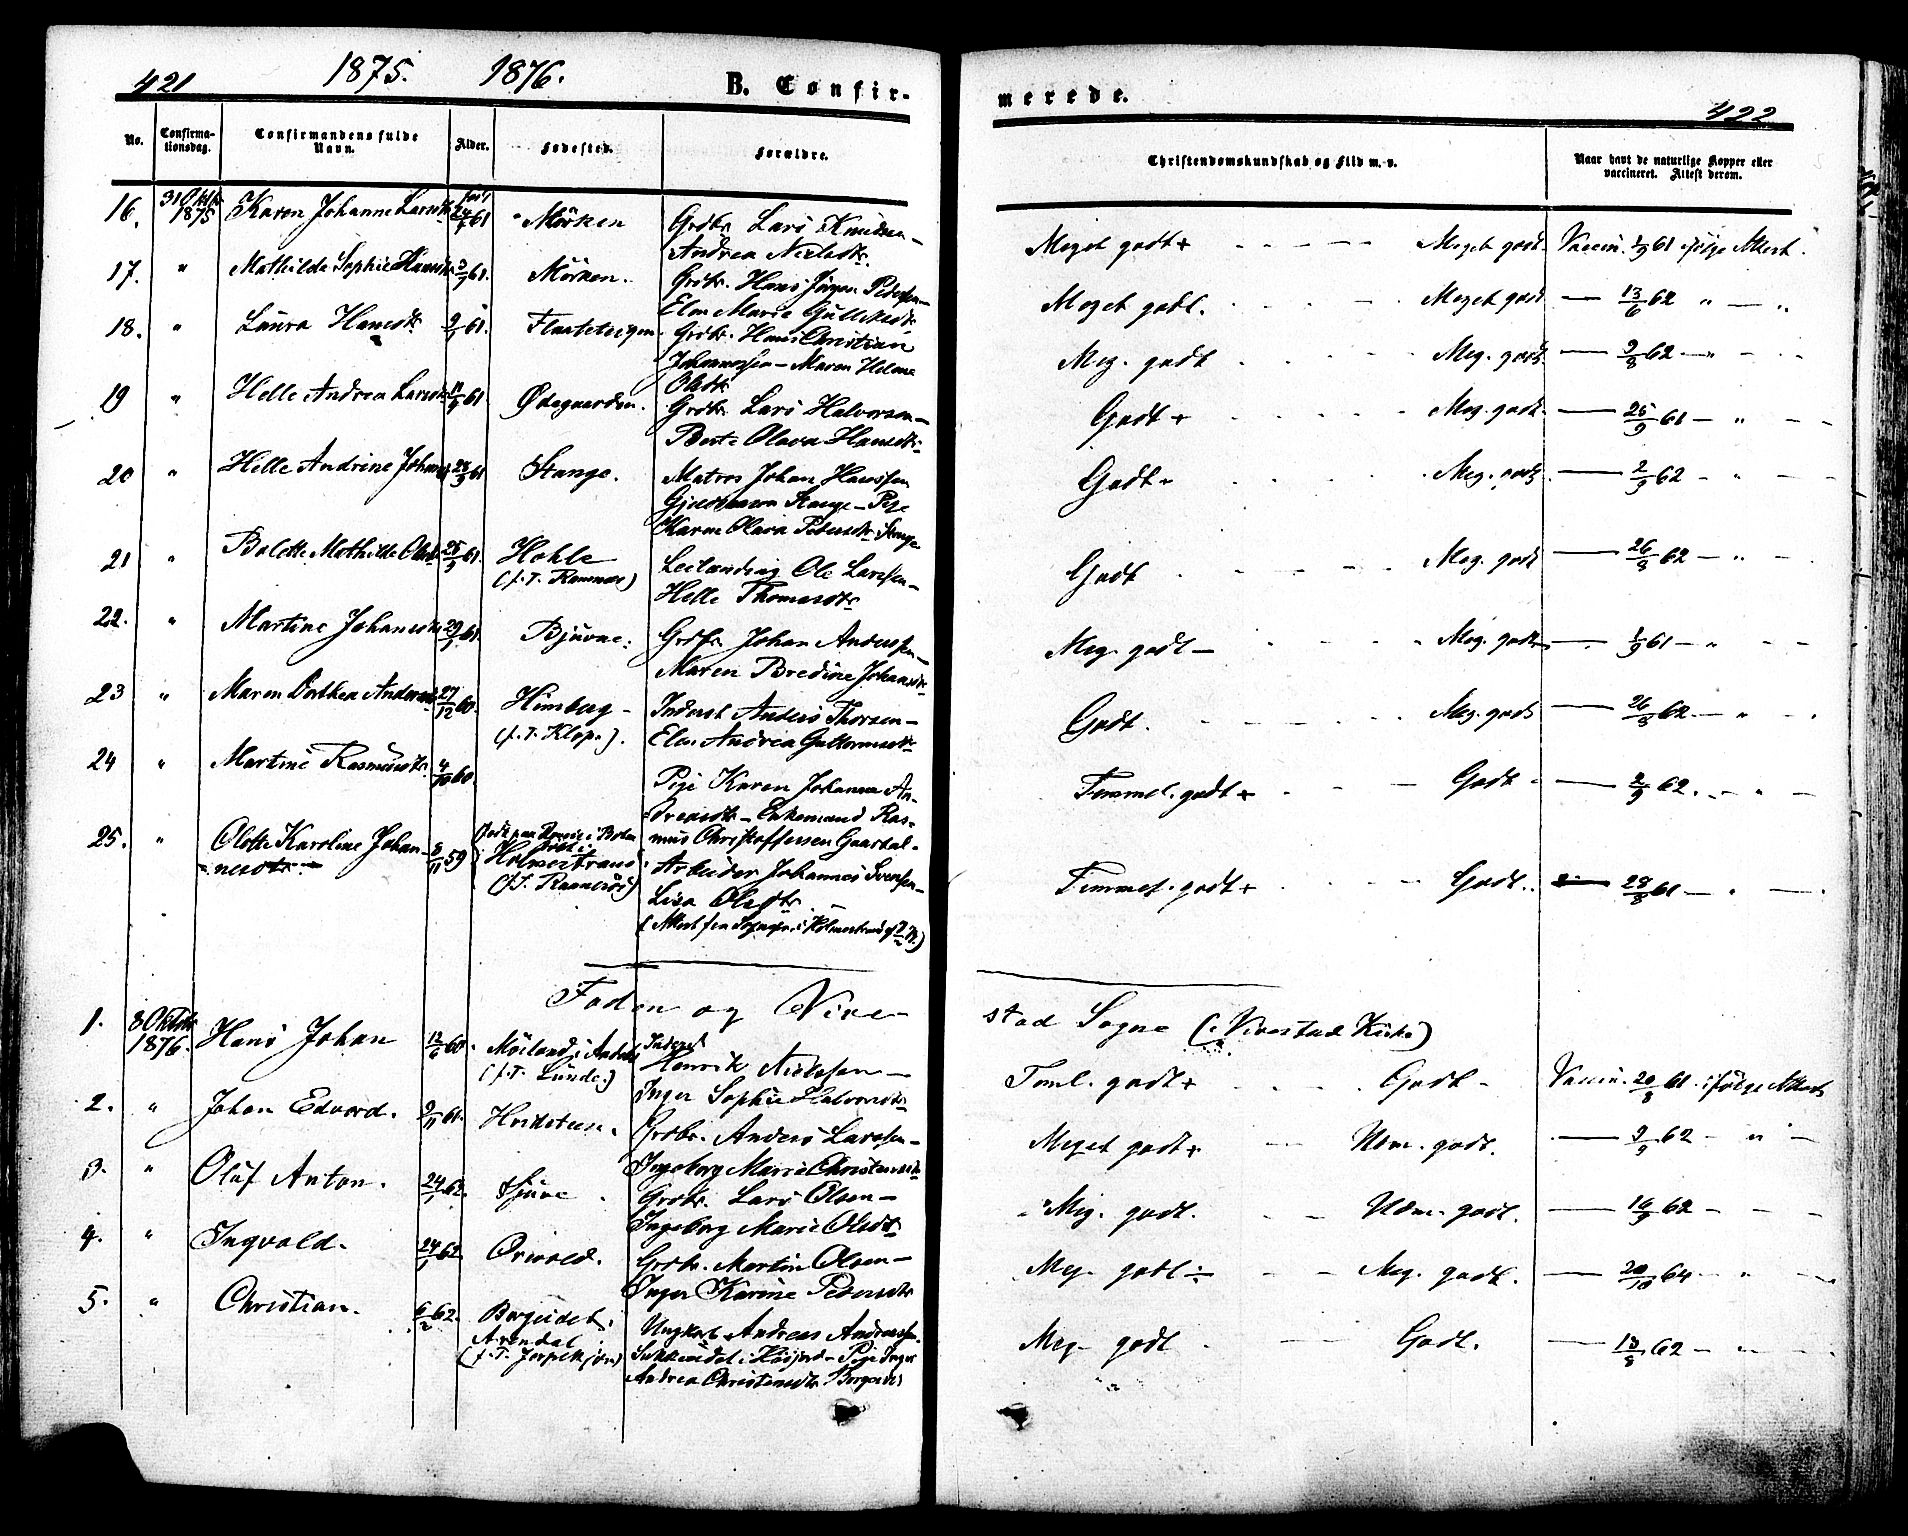 421
1875. 1876.
B. Confir-
merede.
422
No.
Confirma-
tionsdag.
Confirmandens fulde
Navn.
Alder.
Fødested.
Forældre.
Christendomskundskab og Flid m. v.
Naar havt de naturlige Kopper eller
vaccineret. Attest derom.
16. 31 Oktbr 1875 Karen Johanne Larsdtr 24/7 61 Mörken Grdbr. Lars Knudsen –
Andrea Nielsdtr.
Meget godt + Meget godt. Vaccin. 1/9 61 ifølge Attest.
17. " Mathilde Sophie Hansdtr 61. Mörken. Grdbr. Hans Jörgen Pedersen –
Elen Marie Gulliksdtr
Meget godt. Meget godt — 13/6 62 " — "
18. " Laura Hansdtr 61. Grdbr. Hans Christian
Johannessen – Maren Helene
Olsdtr
Meg. godt Meg. godt. — 9/8 62 — "
19 " Helle Andrea Larsdtr 61 Ødegaarden. Grdbr. Lars Halvorsen –
Berte Olava Hansdtr
Godt + Meg. godt. — 25/9 61 — "
20 " Helle Andrine Johansdtr 61 Stange. Matros Johan Hanssen
Stange – Pige
Karen Olava Pedersdtr Stange
Godt – Meg. godt. — 2/9 62 — "
21 " Bolette Mathilde Olsdtr 61. Hohle
(f. T. Ramnæs) Leilænding Ole Larssen –
Helle Thomasdtr
Godt Meg. godt — 26/8 62 — "
22. " Martine Johansdtr 29 61. Bjuvne. Grdbr. Johan Anderssen –
Maren Bredine Johansdtr
Meg. godt – Meg. godt — 1/9 61 — "
23 " Maren Dorthea Andersdtr 27/12 60. Himberg –
(f. T. Klop.). Inderst Anders Thorsen –
Elen Andrea Guttormsdtr
Godt. Meg. godt — 26/8 62 — "
24 " Martine Rasmusdtr. 4/10 60. Pige Karen Johanne An-
dreasdtr – Enkemand Ras-
mus Christoffersen
Temmel. godt + Godt – — 2/9 62. — "
25. " Olette Karoline Johan-
nesdtr. 8/11 59 Holmestrand
(f. T. Ramnæs) Arbeider Johannes Svensen –
Lisa Olsdtr.
Temmel. godt + Godt. — 28/8 61 — "
Foden og Vive-
stad Sogne (i Vivestad Kirke)
1. 8 Oktbr 1876. Hans Johan 12/6 60. Möiland i Andebu
(f. T. Lunde.) Inderst
Henrik Nielssen –
Inger Sophie Halvorsdtr
Teml. godt + Godt – Vaccin. 20/8 61. ifølge Attest
2. " Johan Edvard. 9/11 61. Hvidsteen. Grdbr. Anders Larssen –
Ingeborg Marie Christensdtr
Meget godt + Udm. godt. — 9/9 62 — " —
3. " Oluf Anton. 24/1 62. Grdbr. Lars Olsen –
Ingeborg Marie Olsdtr
Meg. godt. Udm. godt. — 16/9 62 –
4. " Ingvald. 24/1 62. Orivold. Grdbr. Martin Olsen –
Inger Karine Pedersdtr
Meg. godt Meg. godt. — 20/10 64 — "
5. " Christian. 6/2 62. Borgeidet.
Arendal Ungkarl Andreas Anderssen
i Höijord – Pige Inger
Andrea Christensdtr Borgeidet
Meg. godt Godt. — 13/8 62 — "